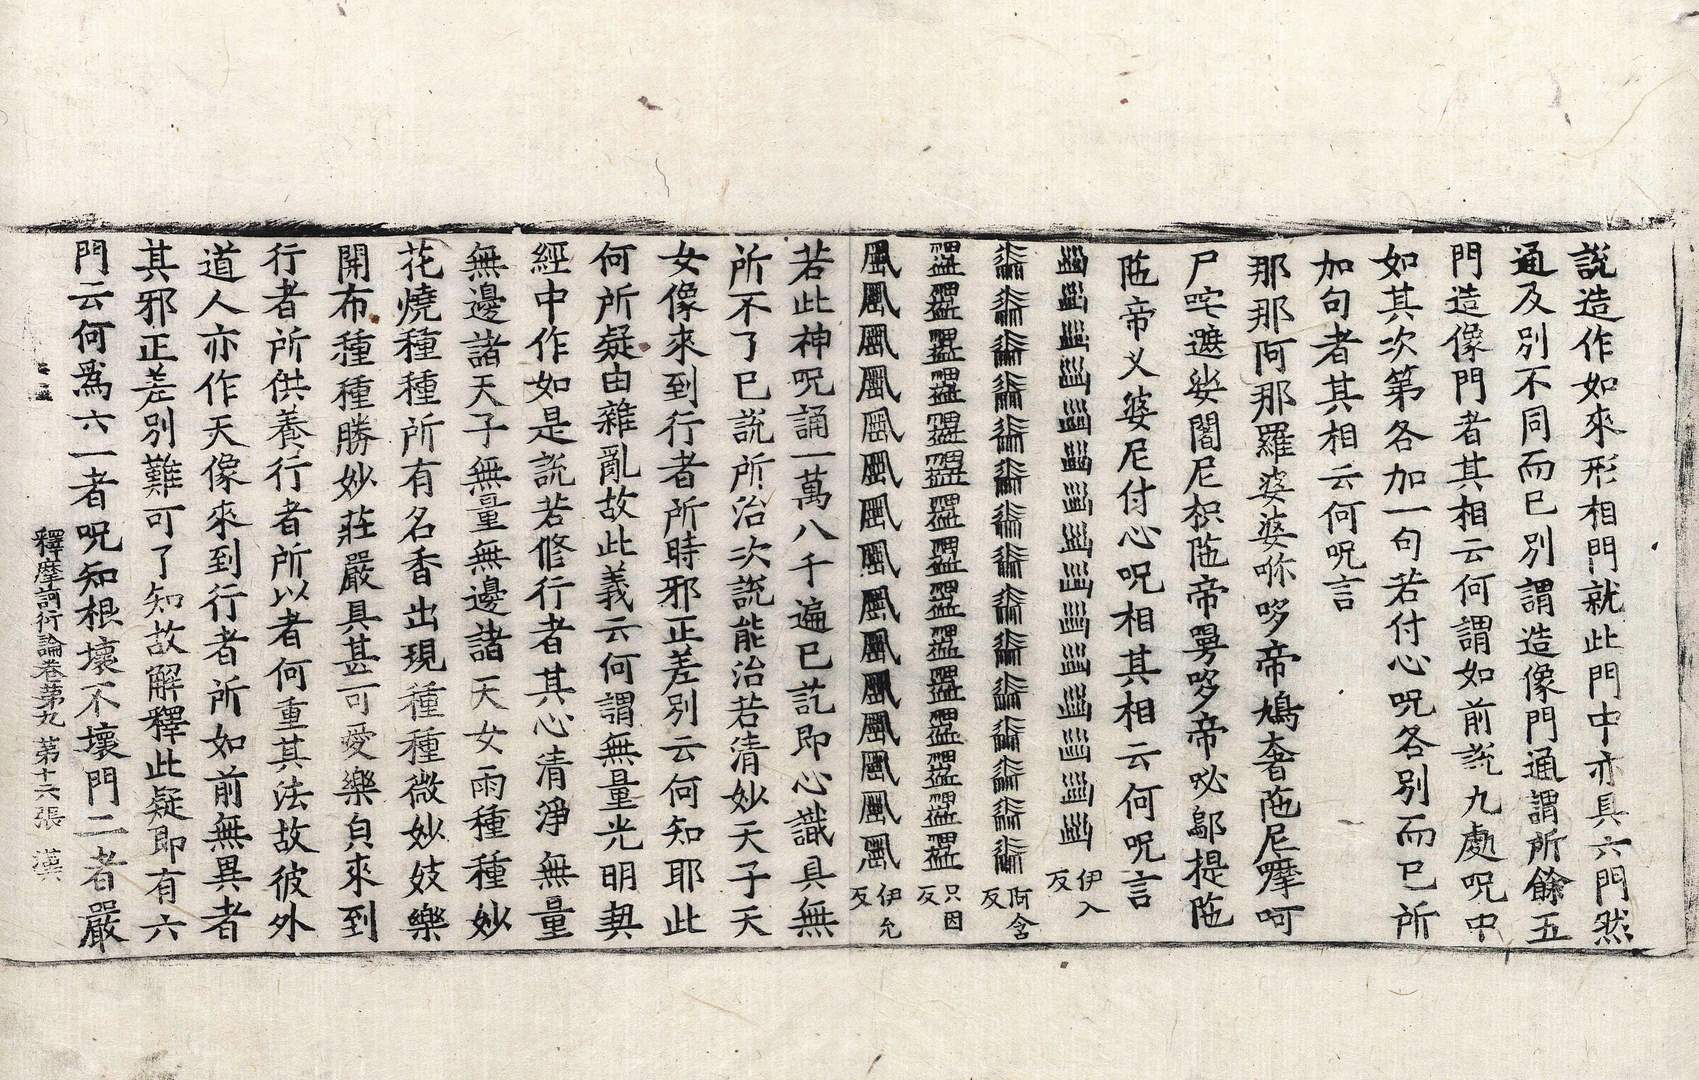 說造作如來形相門就此門中亦具六門然
通及別不同而已別謂造像門通謂所餘五
門造像門者其相云何謂如前說九處呪中
如其次第各加一句若付心呪各別而已所
加句者其相云何呪言
那那阿那羅婆婆㖿哆帝鳩奢陁尼摩呵
尸咤遮娑闍尼枳陁帝㝵哆帝咇鄔提陁
陁帝义婆尼付心呪相其相云何呪言
伊入反
阿含反
只因反
伊允反
若此神呪誦一萬八千遍已訖即心識具無
所不了已說所治次說能治若清妙天子天
女像來到行者所時邪正差別云何知耶此
何所疑由雜亂故此義云何謂無量光明契
經中作如是說若修行者其心清淨無量
無邊諸天子無量無邊諸天女雨種種妙
花燒種種所有名香出現種種微妙妓樂
開布種種勝妙莊嚴具甚可愛樂自來到
行者所供養行者所以者何重其法故彼外
道人亦作天像來到行者所如前無異者
其邪正差別難可了知故解釋此疑即有六
門云何爲六一者呪知根壞不壞門二者嚴
釋摩訶衍論卷第九 第十六張 漢